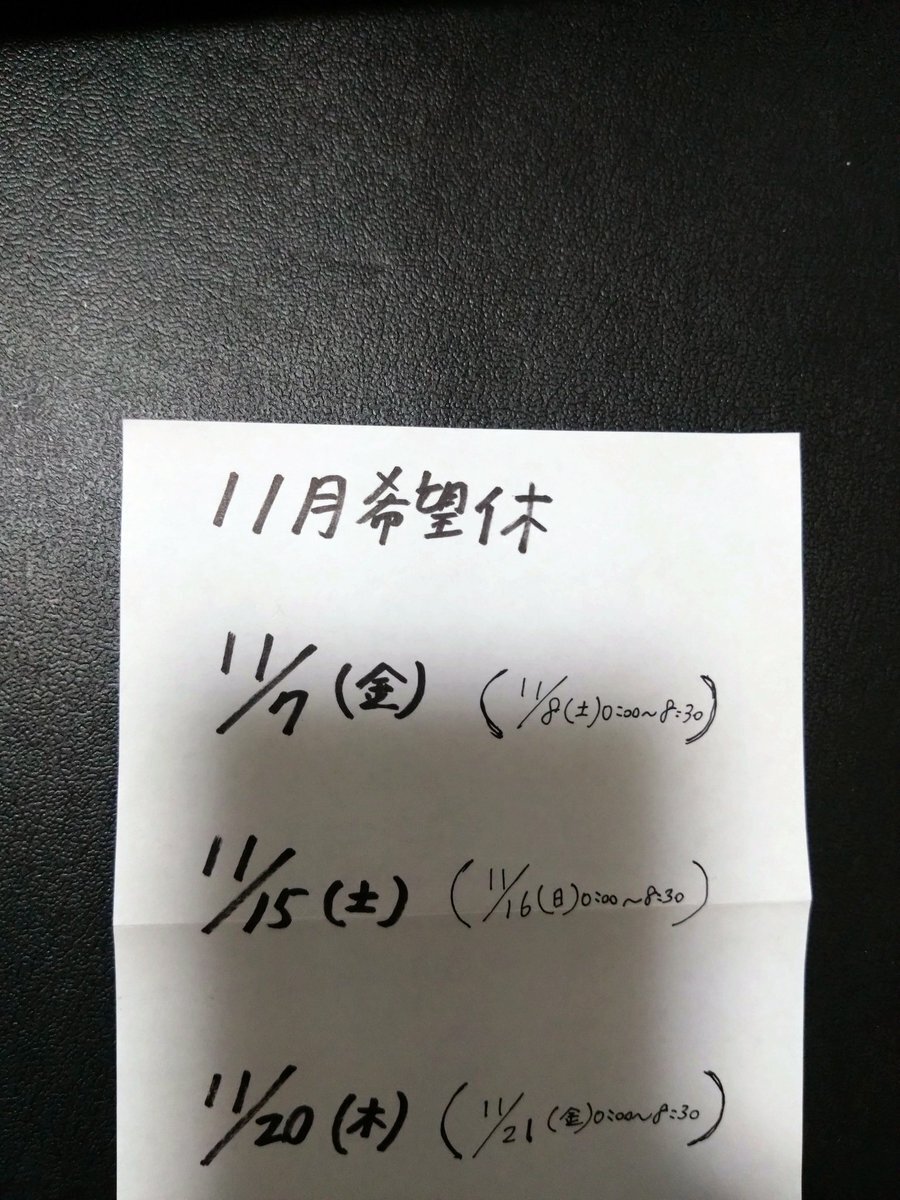 11月希望休
11/7(金) (11/8(土)0:00~8:30)
11/15(土) (11/16(日)0:00~8:30)
11/20(木) (11/21(金)0:00~8:30)